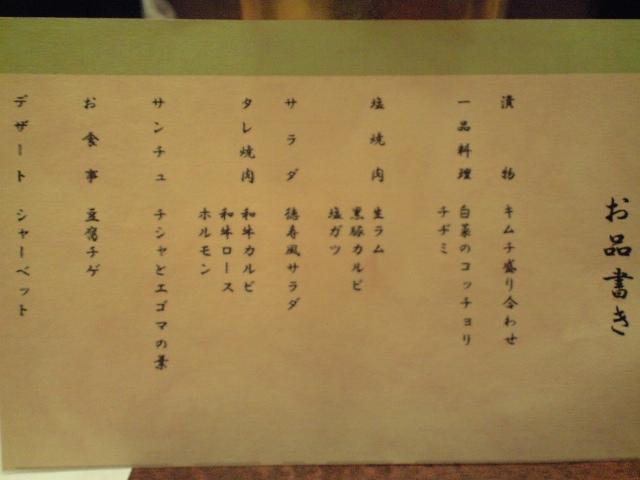 お品書き
漬物 キムチ盛り合わせ
一品料理 白菜のコッチョリ
チヂミ
塩焼肉 生ラム
黒豚カルビ
塩ガツ
サラダ 徳寿風サラダ
タレ焼肉 和牛カルビ
和牛ロース
ホルモン
サンチュ チシャとエゴマの葉
お食事 豆腐チゲ
デザート シャーベット